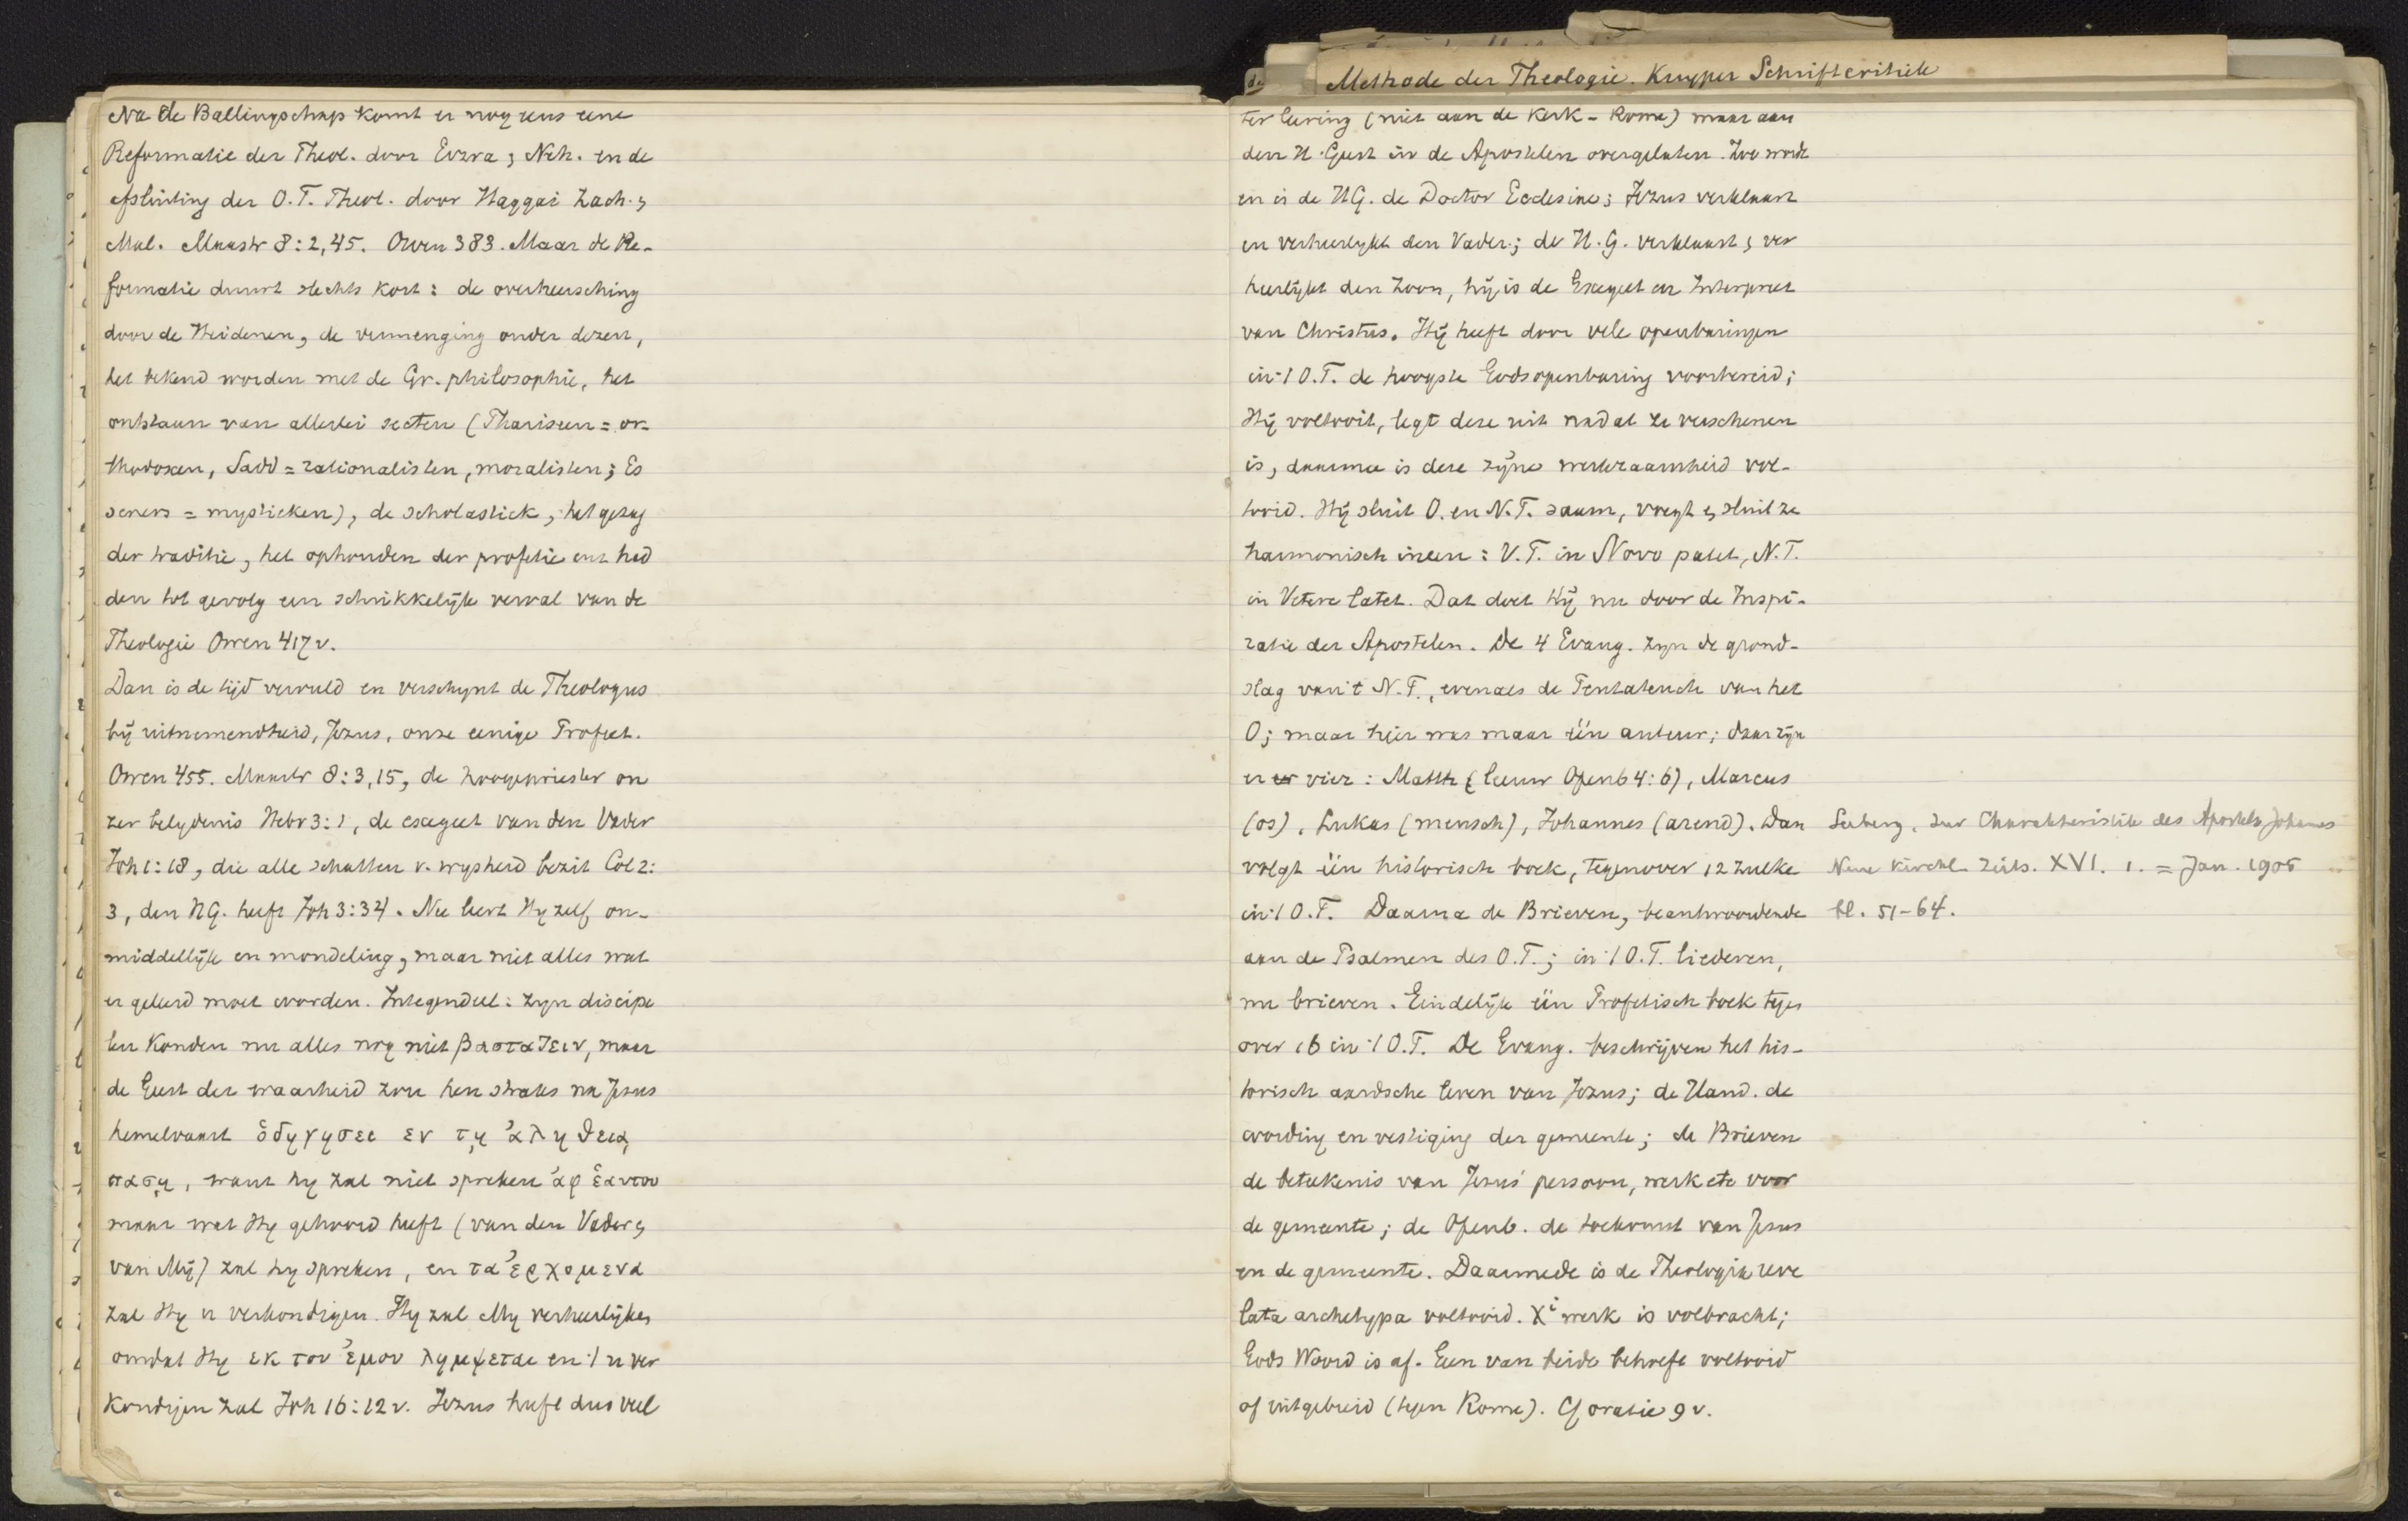 Na de Ballingschap komt er nog eens eene
Reformatie der Theol. door Ezra & Neh. en de
afsluiting der O.T. Theol. door Haggai Zach. &
Mal. Maastr 8:2,45. Owen 383. Maar de Re-
formatie duurt slechts kort: de overheersching
door de Heidenen, de vermenging onder dezen,
het bekend worden met de Gr. philosophie, het
ontstaan van allerlei secten (Phariseen = or-
thodoxen, Sadd = rationalisten, moralisten; Es
seners = mystieken), de scholastick, het gezag
der traditie, het ophouden der profetie enz had
den tot gevolg een schrikkelijk verval van de
Theologie Owen 417 v.
Dan is de tijd vervuld en verschynt de Theologus
bij uitnemendheid, Jezus, onze eenige Profeet.
Owen 455. Maastr 8:3,15, de hoogepriester on
zer belydenis Hebr 3:1, de exegeet van den Vader
Joh 1:18, die alle schatten v. wysheid bezit Col 2:
3, den HG. heeft Joh 3:34. Nu leert Hy zelf on-
middellijk en mondeling, maar niet alles wat
er geleerd moet worden. Integendeel: zyn discipe
len konden nu alles nog niet βασταζειν, maar
de Geest der waarheid zou hen straks na Jezus
hemelvaart ὁδηγησει εν τῃ ἀληθειᾳ
πασῃ, want hy zal niet spreken ἀφ ἑαυτου
maar wat Hy gehoord heeft (van den Vader &
van Mij) zal hy spreken, en τα ἐρχομενα
zal Hy u verkondigen. Hy zal My verheerlijken
omdat Hy εκ του ἐμου λημψεται en 't u ver
kondigen zal Joh 16:12 v. Jezus heeft dus veel
de
Methode der Theologie. Kuyper Schriftcritiek
ter leering (niet aan de Kerk - Rome) maar aan
den H. Geest in de Apostelen overgelaten. Zoo werd
en is de HG. de Doctor Ecclesiae; Jezus verklaart
en verheerlykt den Vader; de H.G. verklaart & ver
heerlijkt den Zoon, hij is de Exegeet en Interpreet
van Christus. Hij heeft door vele openbaringen
in 't O.T. de hoogste Godsopenbaring voorbereid;
Hij voltooit, legt deze uit nadat ze verschenen
is, daarmee is deze zijne werkzaamheid vol-
tooid. Hij sluit O. en N.T. saam, voegt & sluit ze
harmonisch ineen: V.T. in Novo patet, N.T.
in Vetere latet. Dat doet Hij nu door de Inspi-
ratie der Apostelen. De 4 Evang. zyn de grond-
slag van 't N.T., evenals de Pentateuch van het
O; maar hier was maar één auteur; daar zijn
er er vier: Matth (leeuw Openb 4:6), Marcus
(os), Lukas (mensch), Johannes (arend). Dan
volgt één historisch boek, tegenover 12 zulke
in 't O.T. Daarna de Brieven, beantwoordende
aan de Psalmen des O.T.; in 't O.T. liederen,
nu brieven. Eindelijk één Profetisch boek tegen
over 16 in 't O.T. De Evang. beschrijven het his-
torisch aardsche leven van Jezus; de Hand. de
wording en vestiging der gemeente; de Brieven
de beteekenis van Jezus' persoon, werk etc voor
de gemeente; de Openb. de toekomst van Jezus
en de gemeente. Daarmede is de Theologia reve
lata archetypa voltooid. Xⁱ werk is volbracht;
Gods Woord is af. Geen van beide behoeft voltooid
of uitgebreid (tegen Rome). Cf oratie 9 v.
Seeberg, Zur Charakteristik des Apostels Johannes
Neue Kirchl. Zeits. XVI. 1. = Jan. 1905
bl. 51-64.